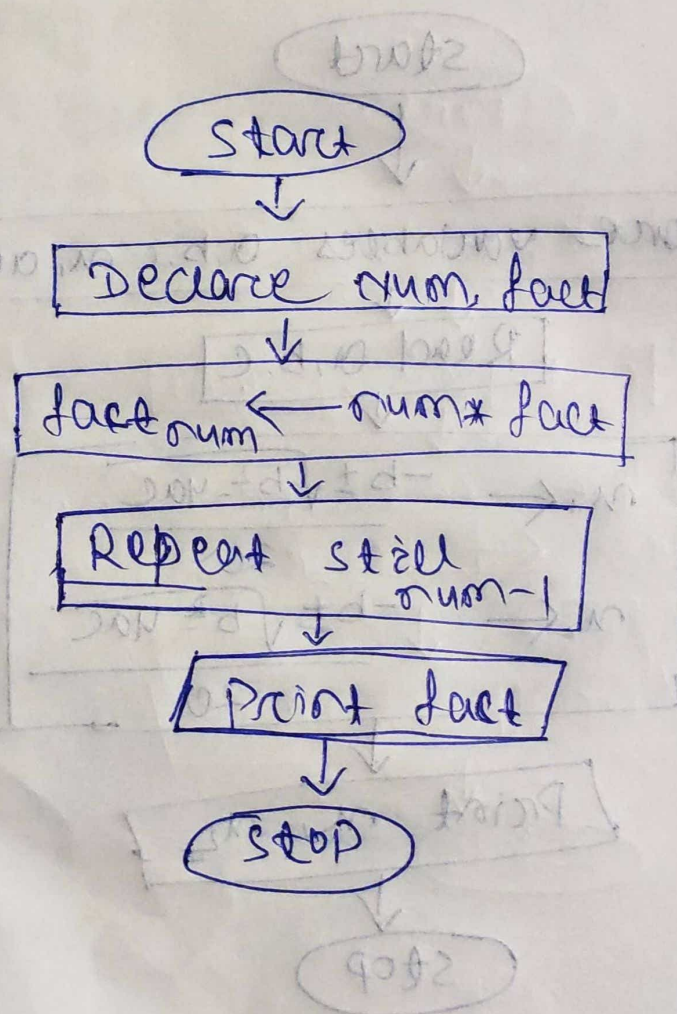 Start
Declare num, fact
fact num ← num * fact
Repeat still
num-1
Print fact
Stop